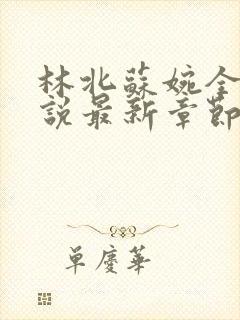 林北蘇婉全
說最新章節
單慶華